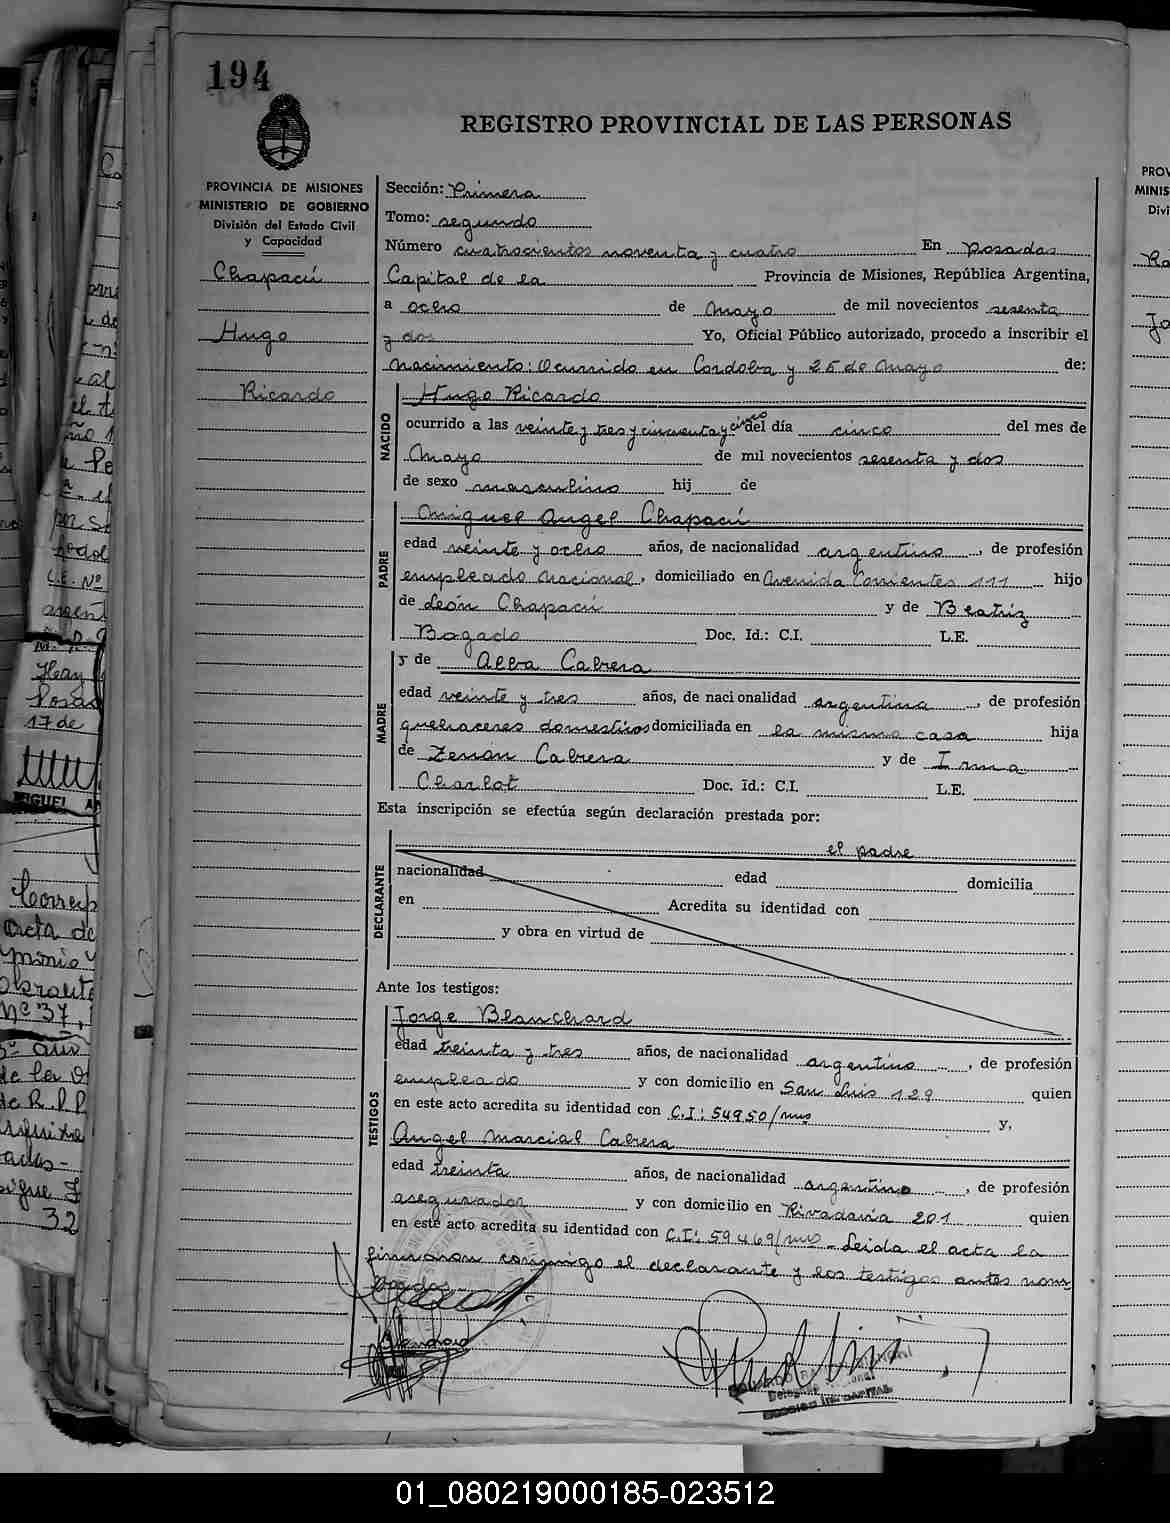 194
REGISTRO PROVINCIAL DE LAS PERSONAS
PROVINCIA DE MISIONES
MINISTERIO DE GOBIERNO
División del Estado Civil
y Capacidad
Chapacú
Hugo
Ricardo
Sección: Primera
Tomo: segundo
Número cuatrocientos noventa y cuatro En Posadas
Capital de la Provincia de Misiones, República Argentina,
a ocho de Mayo de mil novecientos sesenta
y dos Yo, Oficial Público autorizado, procedo a inscribir el
nacimiento: Ocurrido en Cordoba y 25 de Mayo de:
NACIDO
Hugo Ricardo
ocurrido a las veinte y tres y cincuenta y cinco del día cinco del mes de
Mayo de mil novecientos sesenta y dos
de sexo masculino hij de
PADRE
Miguel Angel Chapacú
edad veinte y ocho años, de nacionalidad argentino, de profesión
empleado nacional, domiciliado en Avenida Corrientes 111 hijo
de León Chapacú y de Beatriz
Bogado Doc. Id.: C.I. L.E.
MADRE
y de Alba Cabrera
edad veinte y tres años, de nacionalidad argentina, de profesión
quehaceres domesticos domiciliada en la misma casa hija
de Zenón Cabrera y de Irma
Charlot Doc. Id.: C.I. L.E.
Esta inscripción se efectúa según declaración prestada por:
DECLARANTE
el padre
nacionalidad edad domicilia
en Acredita su identidad con
y obra en virtud de
Ante los testigos:
TESTIGOS
Jorge Blanchard
edad treinta y tres años, de nacionalidad argentino, de profesión
empleado y con domicilio en San Luis 129 quien
en este acto acredita su identidad con C.I: 54950/mns y,
Angel Marcial Cabrera
edad treinta años, de nacionalidad argentino, de profesión
asegurador y con domicilio en Rivadavia 201 quien
en este acto acredita su identidad con C.I: 59469/mns - Leida el acta la
firmaron conmigo el declarante y los testigos antes nom
brados.-
01_080219000185-023512